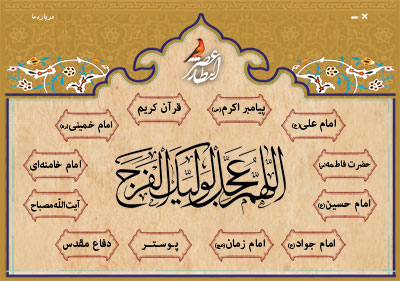 درباره ما
عصر انتظار
قرآن کریم
پیامبر اکرم(ص)
امام خمینی(ره)
امام علی(ع)
اللهم عجل لولیک الفرج
امام خامنه‌ای
حضرت فاطمه(س)
آیت‌الله مصباح
امام حسین(ع)
دفاع مقدس
پوستر
امام زمان(عج)
امام جواد(ع)